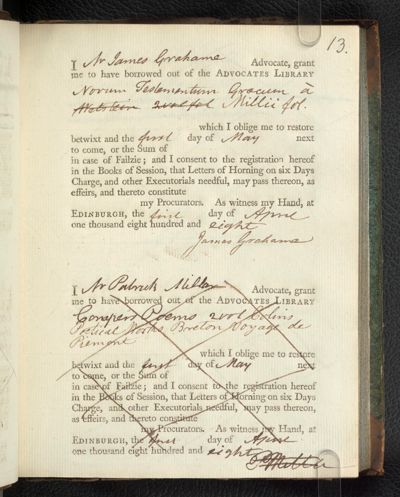 13.
I Mr James Grahame Advocate, grant
me to have borrowed out of the ADVOCATES LIBRARY
Novum Testamentum Græcum à
Wetstein 2 vol fol Millii fol.
which I oblige me to restore
betwixt and the first day of May next
to come, or the Sum of
in case of Failzie; and I consent to the registration hereof
in the Books of Session, that Letters of Horning on six Days
Charge, and other Executorials needful, may pass thereon, as
effeirs, and thereto constitute
my Procurators. As witness my Hand, at
EDINBURGH, the first day of April
one thousand eight hundred and eight
James Grahame
I Mr Patrick Millar Advocate, grant
me to have borrowed out of the ADVOCATES LIBRARY
Cowpers Poems 2 vol Colins
Poetical Works Breton Voyage de
Piemont
which I oblige me to restore
betwixt and the first day of May next
to come, or the Sum of
in case of Failzie; and I consent to the registration hereof
in the Books of Session, that Letters of Horning on six Days
Charge, and other Executorials needful, may pass thereon,
as effeirs, and thereto constitute
my Procurators. As witness my Hand, at
EDINBURGH, the day of April
one thousand eight hundred and eight
P Millar